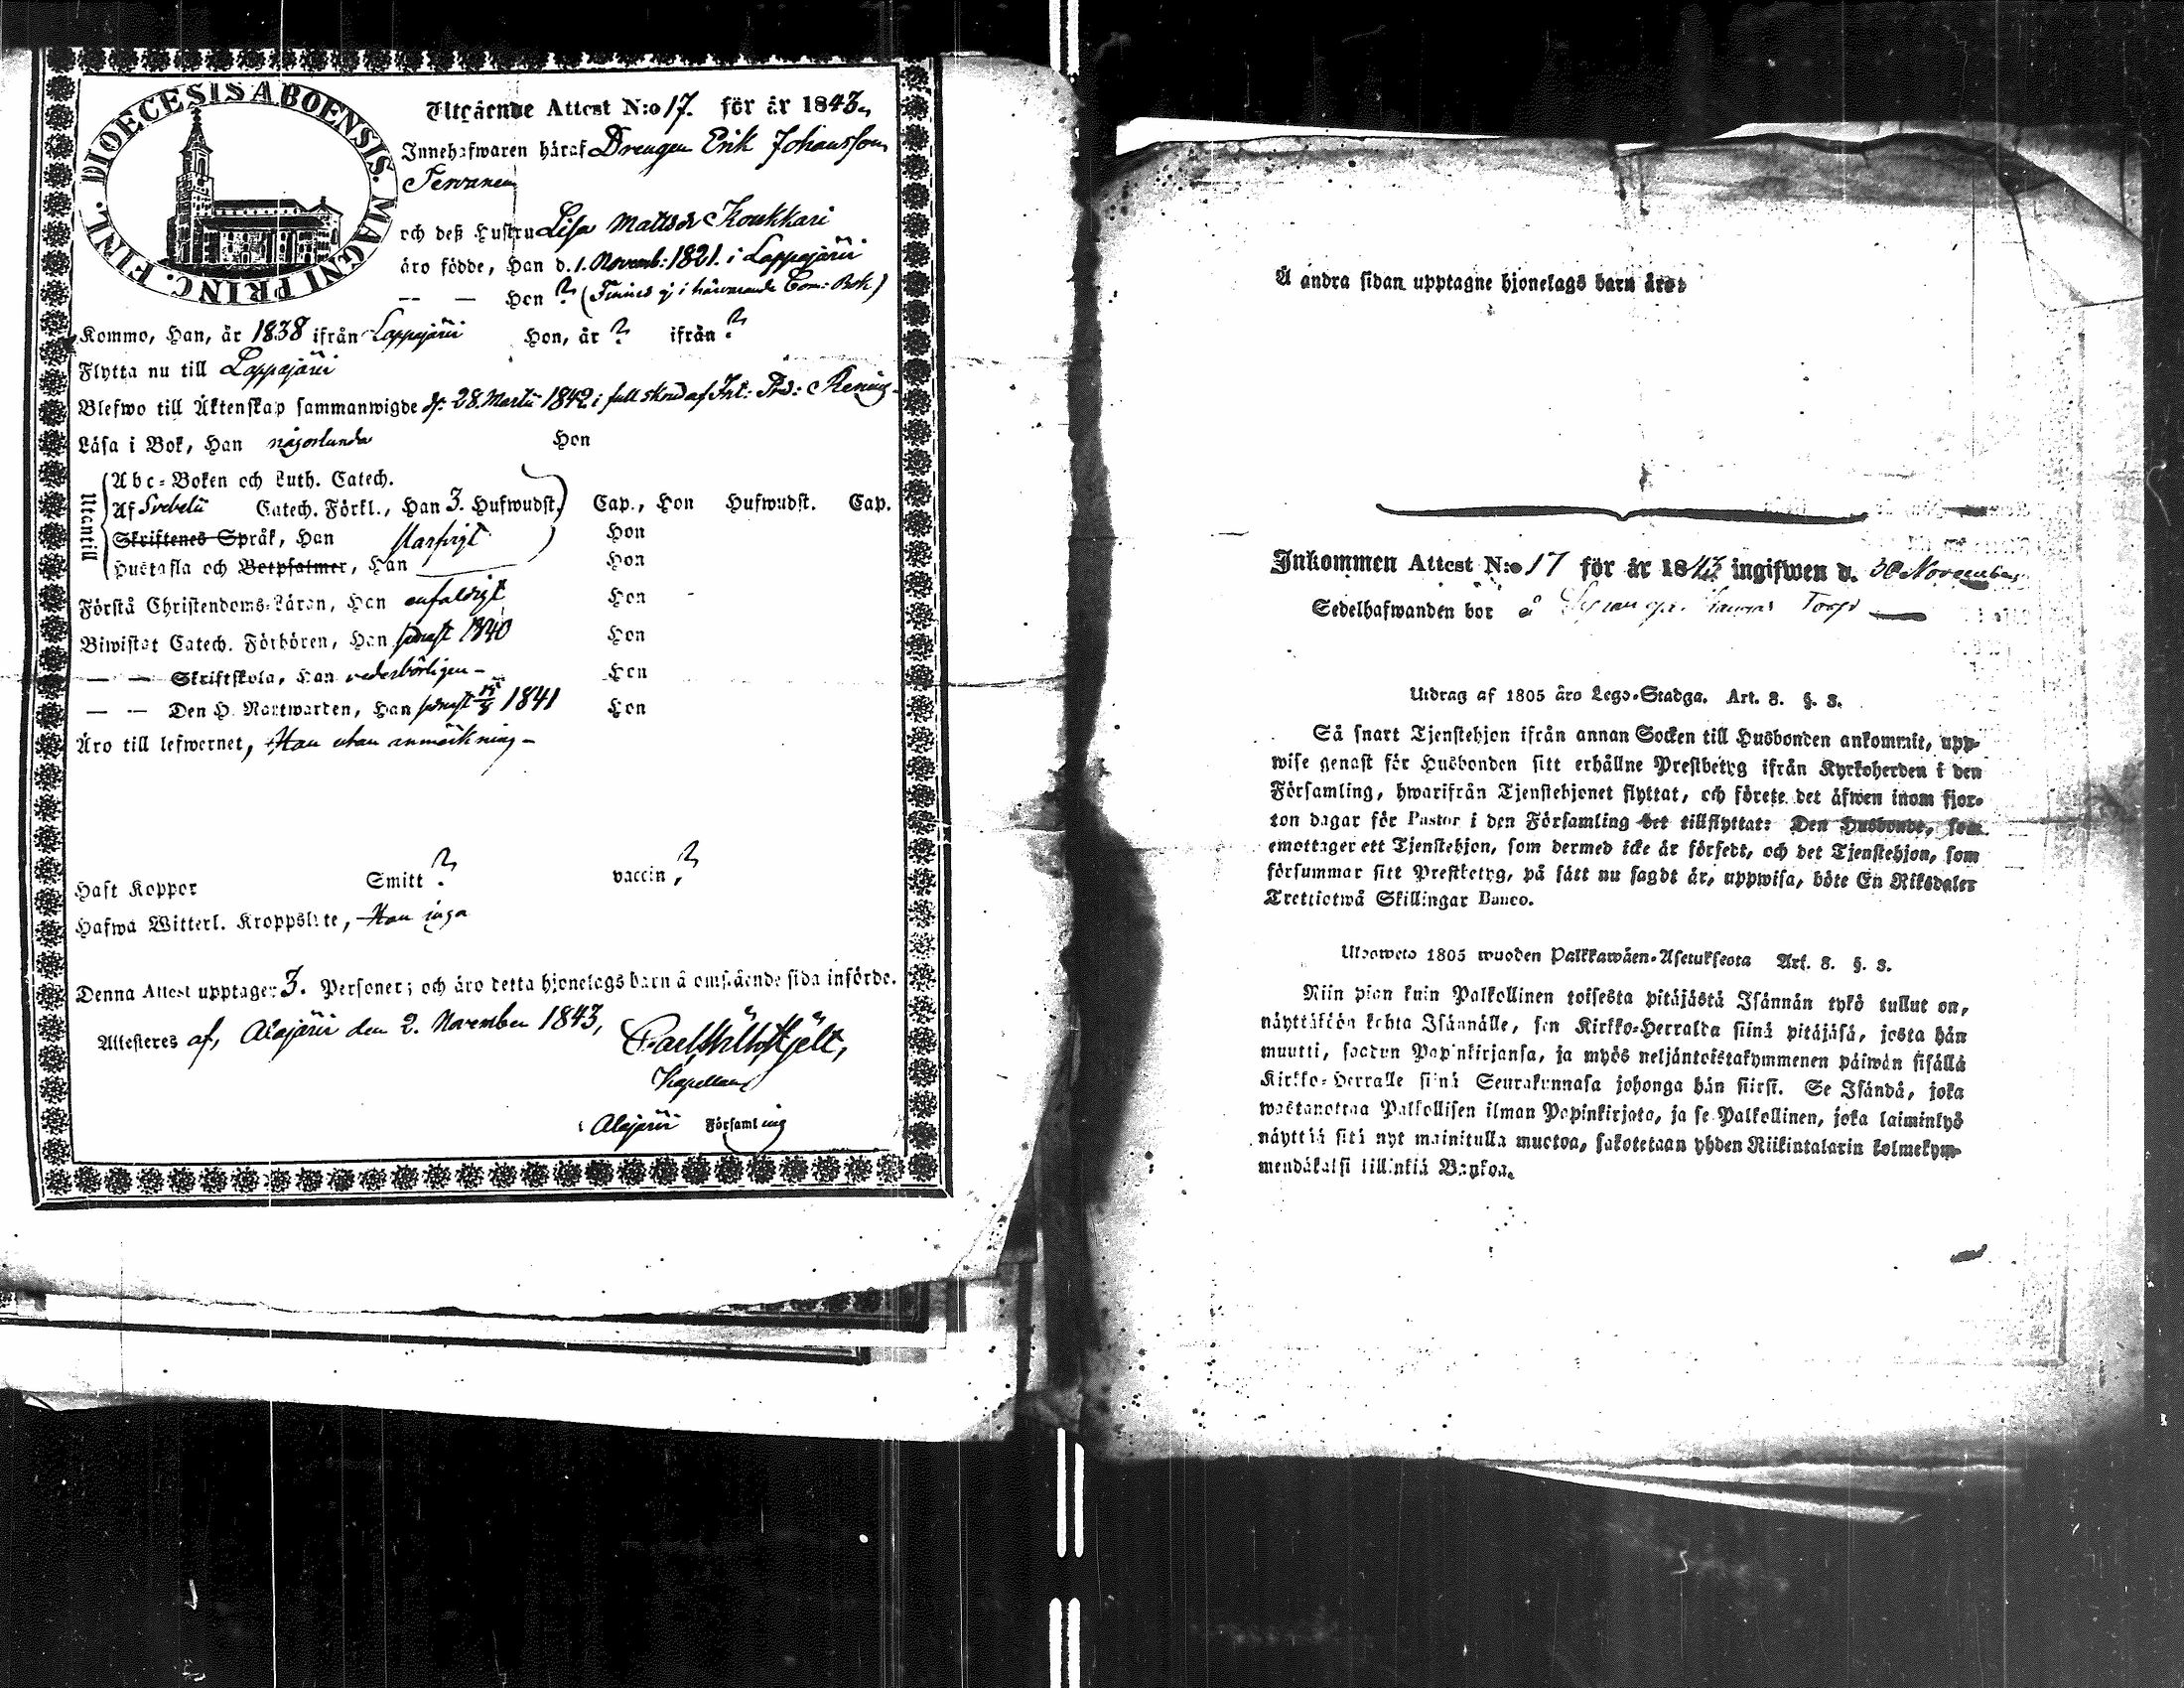 DIOECESIS ABOENSIS. MAGNI PRINC. FINL.
Utgående Attest N:o 17. för år 1843.
Innehafwaren häraf Drengen Erik Johansson
Tervanen
och deß Hustru Lisa Mattsdr Koukkari
äro födde, Han d. 1. Novemb: 1821. i Lappajärvi
-- — Hon ? (Finnes ej i härvarande Com: Bok)
Komme, Han, år 1838 ifrån Lappajärvi Hon, år ? ifrån ?
Flytta nu till Lappajärvi
Blefwo till Äktenskap sammanwigde d. 28. Martii 1842 i full
Läsa i Bok, Han någorlunda Hon
Utantill
Abc-Boken och Luth. Catech.
Af Svebelii Catech. Förkl., Han 3. Hufwudst. Cap., Hon Hufwudst. Cap.
Skriftenes Språk, Han Hon
Hustafla och Botpsalmer, Han Hon
Förstå Christendoms-Läran, Han enfaldigt Hon
Biwistat Catech. Förhören, Han senast 1840 Hon
— — Skriftskola, Han vederbörligen - Hon
— — Den H. Nattwarden, Han senast 1841 Hon
Äro till lefwernet, Han utan anmärkning -
Haft Koppor Smitt ? vaccin, ?
Hafwa Witterl. Kroppslyte, Han inga
Denna Attest upptager 3. Personer; och äro detta hjonelags barn å omstående sida införde.
Attesteres af, Alajärvi den 2. November 1843,
Kapellan
i Alajärvi Församling
Å andra sidan upptagne hjonelags barn äro:
Inkommen Attest N:o 17 för år 1843 ingifwen d. 30 November
Sedelhafwanden bor å Torp
Utdrag af 1805 års Lego-Stadga. Art. 8. §. 3.
Så snart Tjenstehjon ifrån annan Socken till Husbonden ankommit, upp-
wise genast för Husbonden sitt erhållne Prestbetyg ifrån Kyrkoherden i den
Församling, hwarifrån Tjenstehjonet flyttat, och förete det äfwen inom fjor-
ton dagar för Pastor i den Församling det tillflyttat: Den Husbonde, som
emottager ett Tjenstehjon, som dermed icke är försedt, och det Tjenstehjon, som
försummar sitt Prestbetyg, på sätt nu sagdt är, uppwisa, böte En Riksdaler
Trettiotwå Skillingar Banco.
Ulosweto 1805 wuoden Palkkawäen-Asetuksesta Art. 8. §. 3.
Niin pian kuin Palkollinen toisesta pitäjästä Isännän tykö tullut on,
näyttäköön kohta Isännälle, sen Kirkko-Herralda siinä pitäjäsä, josta hän
muutti, saadun Papinkirjansa, ja myös neljäntoistakymmenen päiwän sisällä
Kirkko-Herralle siinä Seurakunnasa johonga hän siirsi. Se Isändä, joka
wastanottaa Palkollisen ilman Papinkirjata, ja se Palkollinen, joka laiminlyö
näyttää sitä nyt mainitulla muotoa, sakotetaan yhden Riikintalarin kolmekym-
mendäkaksi killinkiä Bankoa.